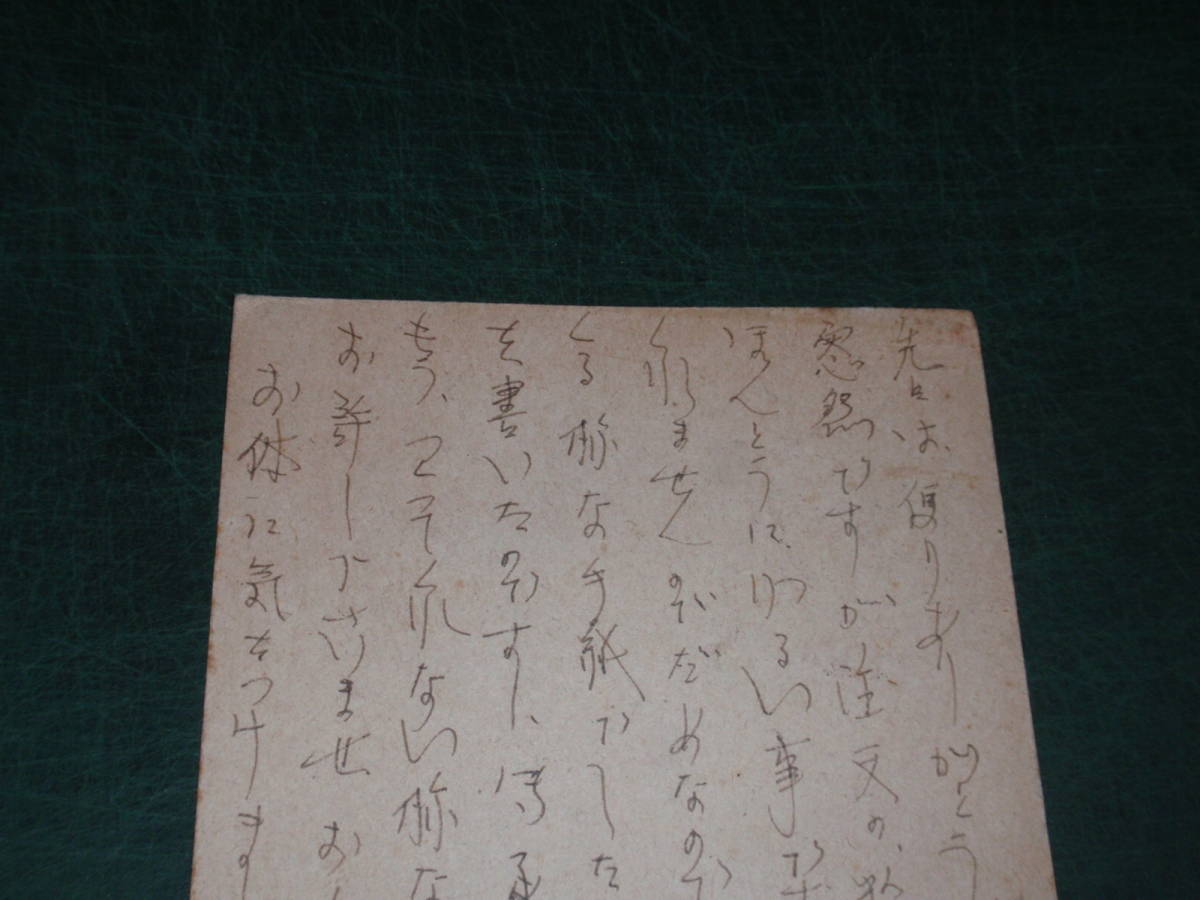 先日は便りありがとう
ですが注文の
ほんとうに、わるい事で
ませんのでだめなので
くる様な手紙でした
を書いたのです し、
もう、って くれない様な
お許し下さいませ お
お体に気をつけま